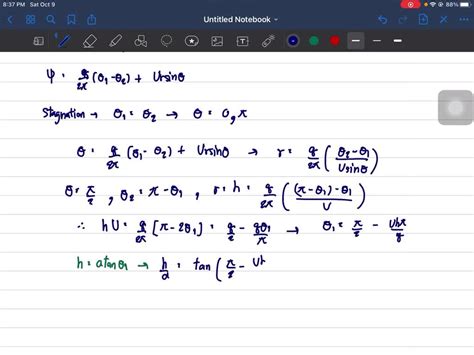 8:37 PM Sat Oct 9
88%
Untitled Notebook
ψ = q/2π (θ₁-θ₂) + Ursinθ
Stagnation → θ₁ = θ₂ → θ = 0, π
0 = q/2π (θ₁-θ₂) + Ursinθ → r = q/2π ( θ₂-θ₁ / Usinθ )
θ = π/2 , θ₂ = π-θ₁ , r = h = q/2π ( (π-θ₁)-θ₁ / U )
∴ hU = q/2π [π-2θ₁] = q/2 - qθ₁/π → θ₁ = π/2 - Uhπ/q
h = atanθ₁ → h/a = tan ( π/2 - Uh